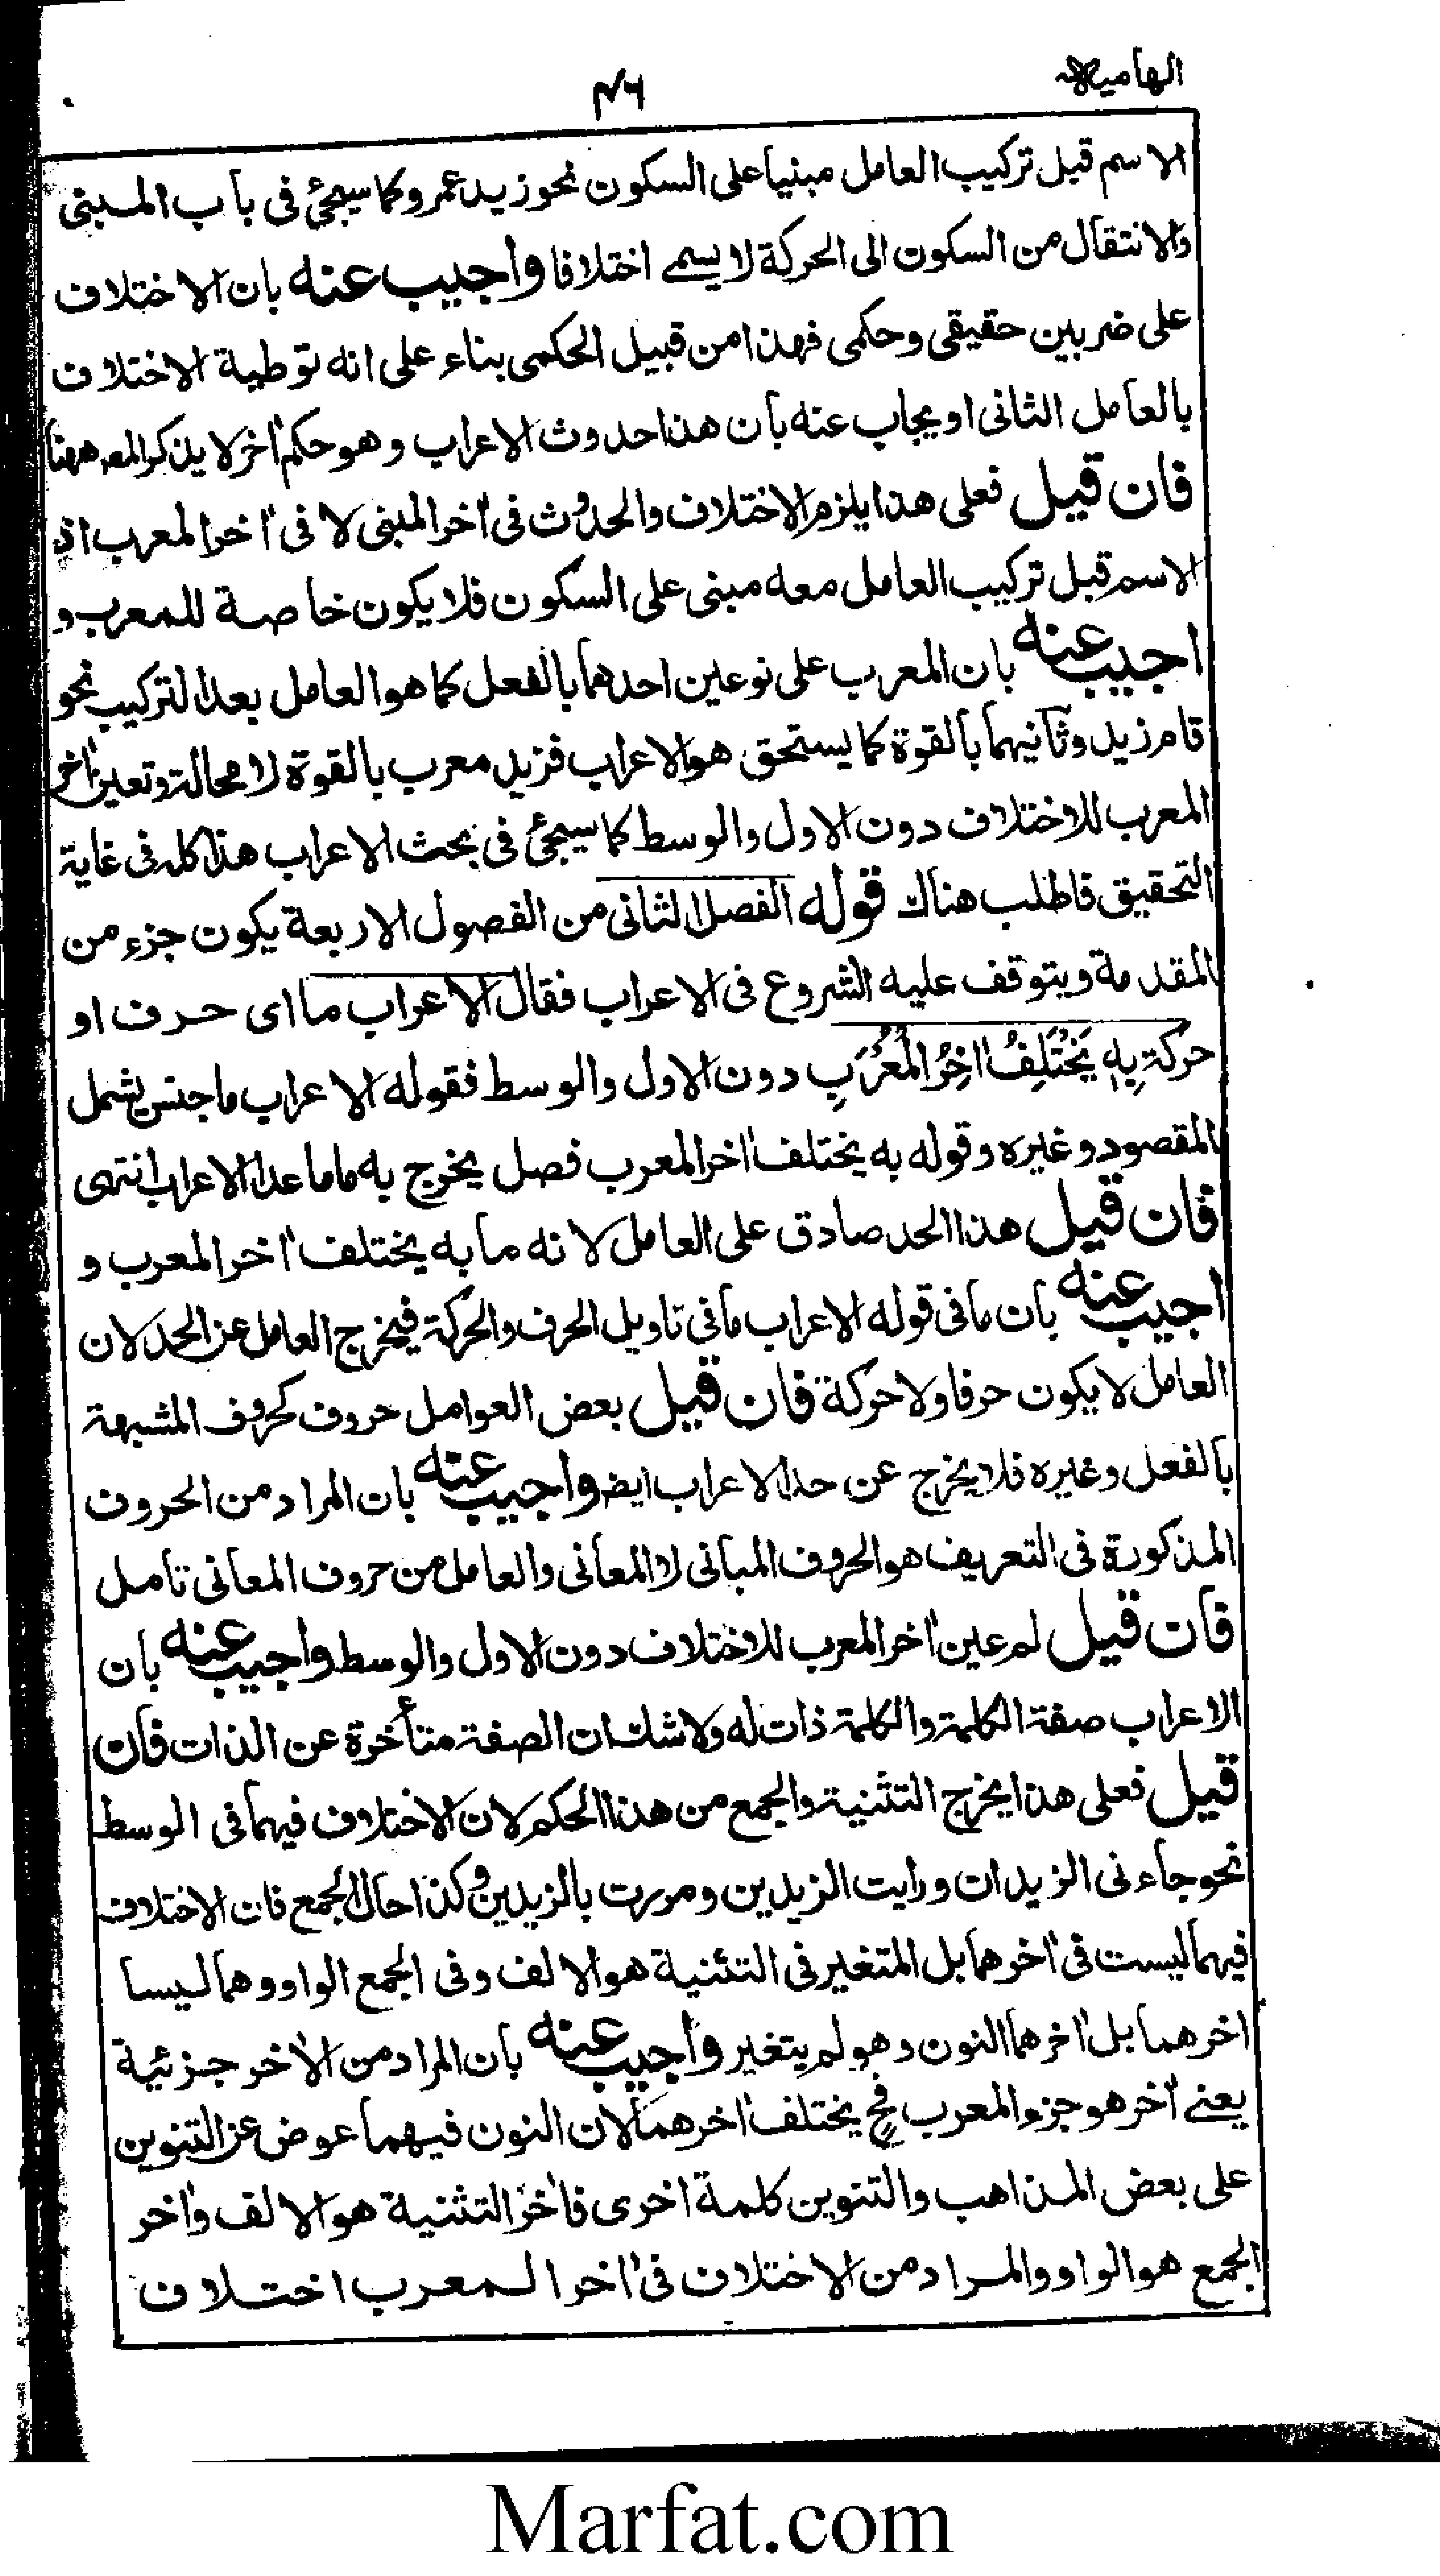 الهامية
۴۶
الاسم قبل تركيب العامل مبنيا على السكون نحو زيد عمرو كما سيجئ فى باب المبنى
والانتقال من السكون الى الحركة لا يسمے اختلافا واجيب عنه بان الاختلاف
على ضربين حقيقى وحكمى فهذا من قبيل الحكمى بناء على انه توطية الاختلاف
بالعامل الثانى او يجاب عنه بان هذا حدوث الاعراب وهو حكم اخر لا يذكر المعه ههنا
فان قيل فعلى هذا يلزم الاختلاف والحدوث فى اخر المبنى لا فى اخر المعرب اذ
الاسم قبل تركيب العامل معه مبنى على السكون فلا يكون خاصة للمعرب و
اجيب عنه بان المعرب على نوعين احدهما بالفعل كما هو العامل بعد التركيب نحو
قام زيد وثانيهما بالقوة كما يستحق هو الاعراب فزيد معرب بالقوة لا محالة وتعين اخر
المعرب للاختلاف دون الاول والوسط كما سيجئ فى بحث الاعراب هذا كله فى غاية
التحقيق فاطلب هناك قوله الفصل الثانى من الفصول الاربعة يكون جزء من
المقدمة ويتوقف عليه الشروع فى الاعراب فقال الاعراب ما اى حرف او
حركة بِهٖ يَخْتَلِفُ اخِرُ المُعْرَبِ دون الاول والوسط فقوله الاعراب ما جنس يشمل
المقصود وغيره وقوله به يختلف اخر المعرب فصل يخرج به ما ما عدا الاعراب انتهى
فان قيل هذا الحد صادق على العامل لانه ما به يختلف اخر المعرب و
اجيب عنه بان ما فى قوله الاعراب ما فى تاويل الحرف والحركة فيخرج العامل عن الحد لان
العامل لا يكون حرفا ولا حركة فان قيل بعض العوامل حروف كحروف المشبهة
بالفعل وغيره فلا يخرج عن حد الاعراب ايض واجيب عنه بان المراد من الحروف
المذكورة فى التعريف هو الحروف المبانى لا المعانى والعامل من حروف المعانى تامل
فان قيل لم عين اخر المعرب للاختلاف دون الاول والوسط واجيب عنه بان
الاعراب صفة الكلمة والكلمة ذات له ولا شك ان الصفة متأخرة عن الذات فان
قيل فعلى هذا يخرج التثنية والجمع من هذا الحكم لان الاختلاف فيهما فى الوسط
نحو جاءنى الزيدان ورايت الزيدين ومررت بالزيدين وكذا حال الجمع فان الاختلاف
فيهما ليست فى اخرهما بل المتغير فى التثنية هو الالف وفى الجمع الواو وهما ليسا
اخرهما بل اخرهما النون وهو لم يتغير واجيب عنه بان المراد من الاخر جزئية
يعنے آخر هو جزو المعرب فح يختلف اخرهما لان النون فيهما عوض عن التنوين
على بعض المذاهب والتنوين كلمة اخرى فاخر التثنية هو الالف واخر
الجمع هو الواو والمراد من الاختلاف فى اخر المعرب اختلاف
Marfat.com